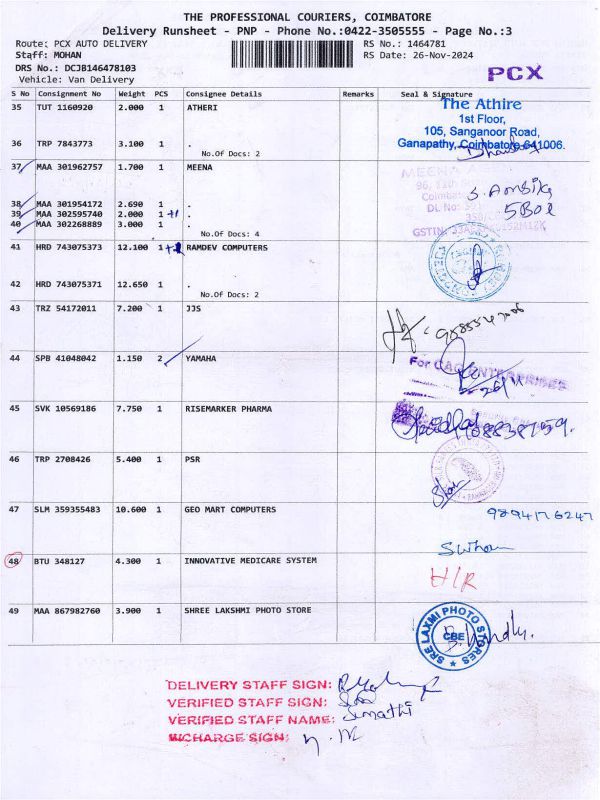 THE PROFESSIONAL COURIERS, COIMBATORE
Delivery Runsheet - PNP - Phone No.:0422-3505555 - Page No.:3
Route: PCX AUTO DELIVERY RS No.: 1464781
Staff: MOHAN RS Date: 26-Nov-2024
DRS No.: DCJB146478103
Vehicle: Van Delivery
PCX
S No Consignment No Weight PCS Consignee Details Remarks Seal & Signature
35 TUT 1160920 2.000 1 ATHERI
The Athire
1st Floor,
105, Sanganoor Road,
Ganapathy, Coimbatore-641006.
36 TRP 7843773 3.100 1 .
No.Of Docs: 2
37 MAA 301962757 1.700 1 MEENA
MEENA
38 MAA 301954172 2.690 1 .
39 MAA 302595740 2.000 1 +1 .
40 MAA 302268889 3.000 1 .
No.Of Docs: 4
S. Ambika
DL No:
GSTIN:
41 HRD 743075373 12.100 1 RAMDEV COMPUTERS
42 HRD 743075371 12.650 1 .
No.Of Docs: 2
43 TRZ 54172011 7.200 1 JJS
44 SPB 41048042 1.150 2 YAMAHA
For CAG ENTERPRISES
26/11
45 SVK 10569186 7.750 1 RISEMARKER PHARMA
46 TRP 2708426 5.400 1 PSR
47 SLM 359355483 10.600 1 GEO MART COMPUTERS
9894176247
48 BTU 348127 4.300 1 INNOVATIVE MEDICARE SYSTEM
H/R
49 MAA 867982760 3.900 1 SHREE LAKSHMI PHOTO STORE
SRE LAXMI PHOTO STORES
CBE
DELIVERY STAFF SIGN:
VERIFIED STAFF SIGN:
VERIFIED STAFF NAME: Sumathi
INCHARGE SIGN: